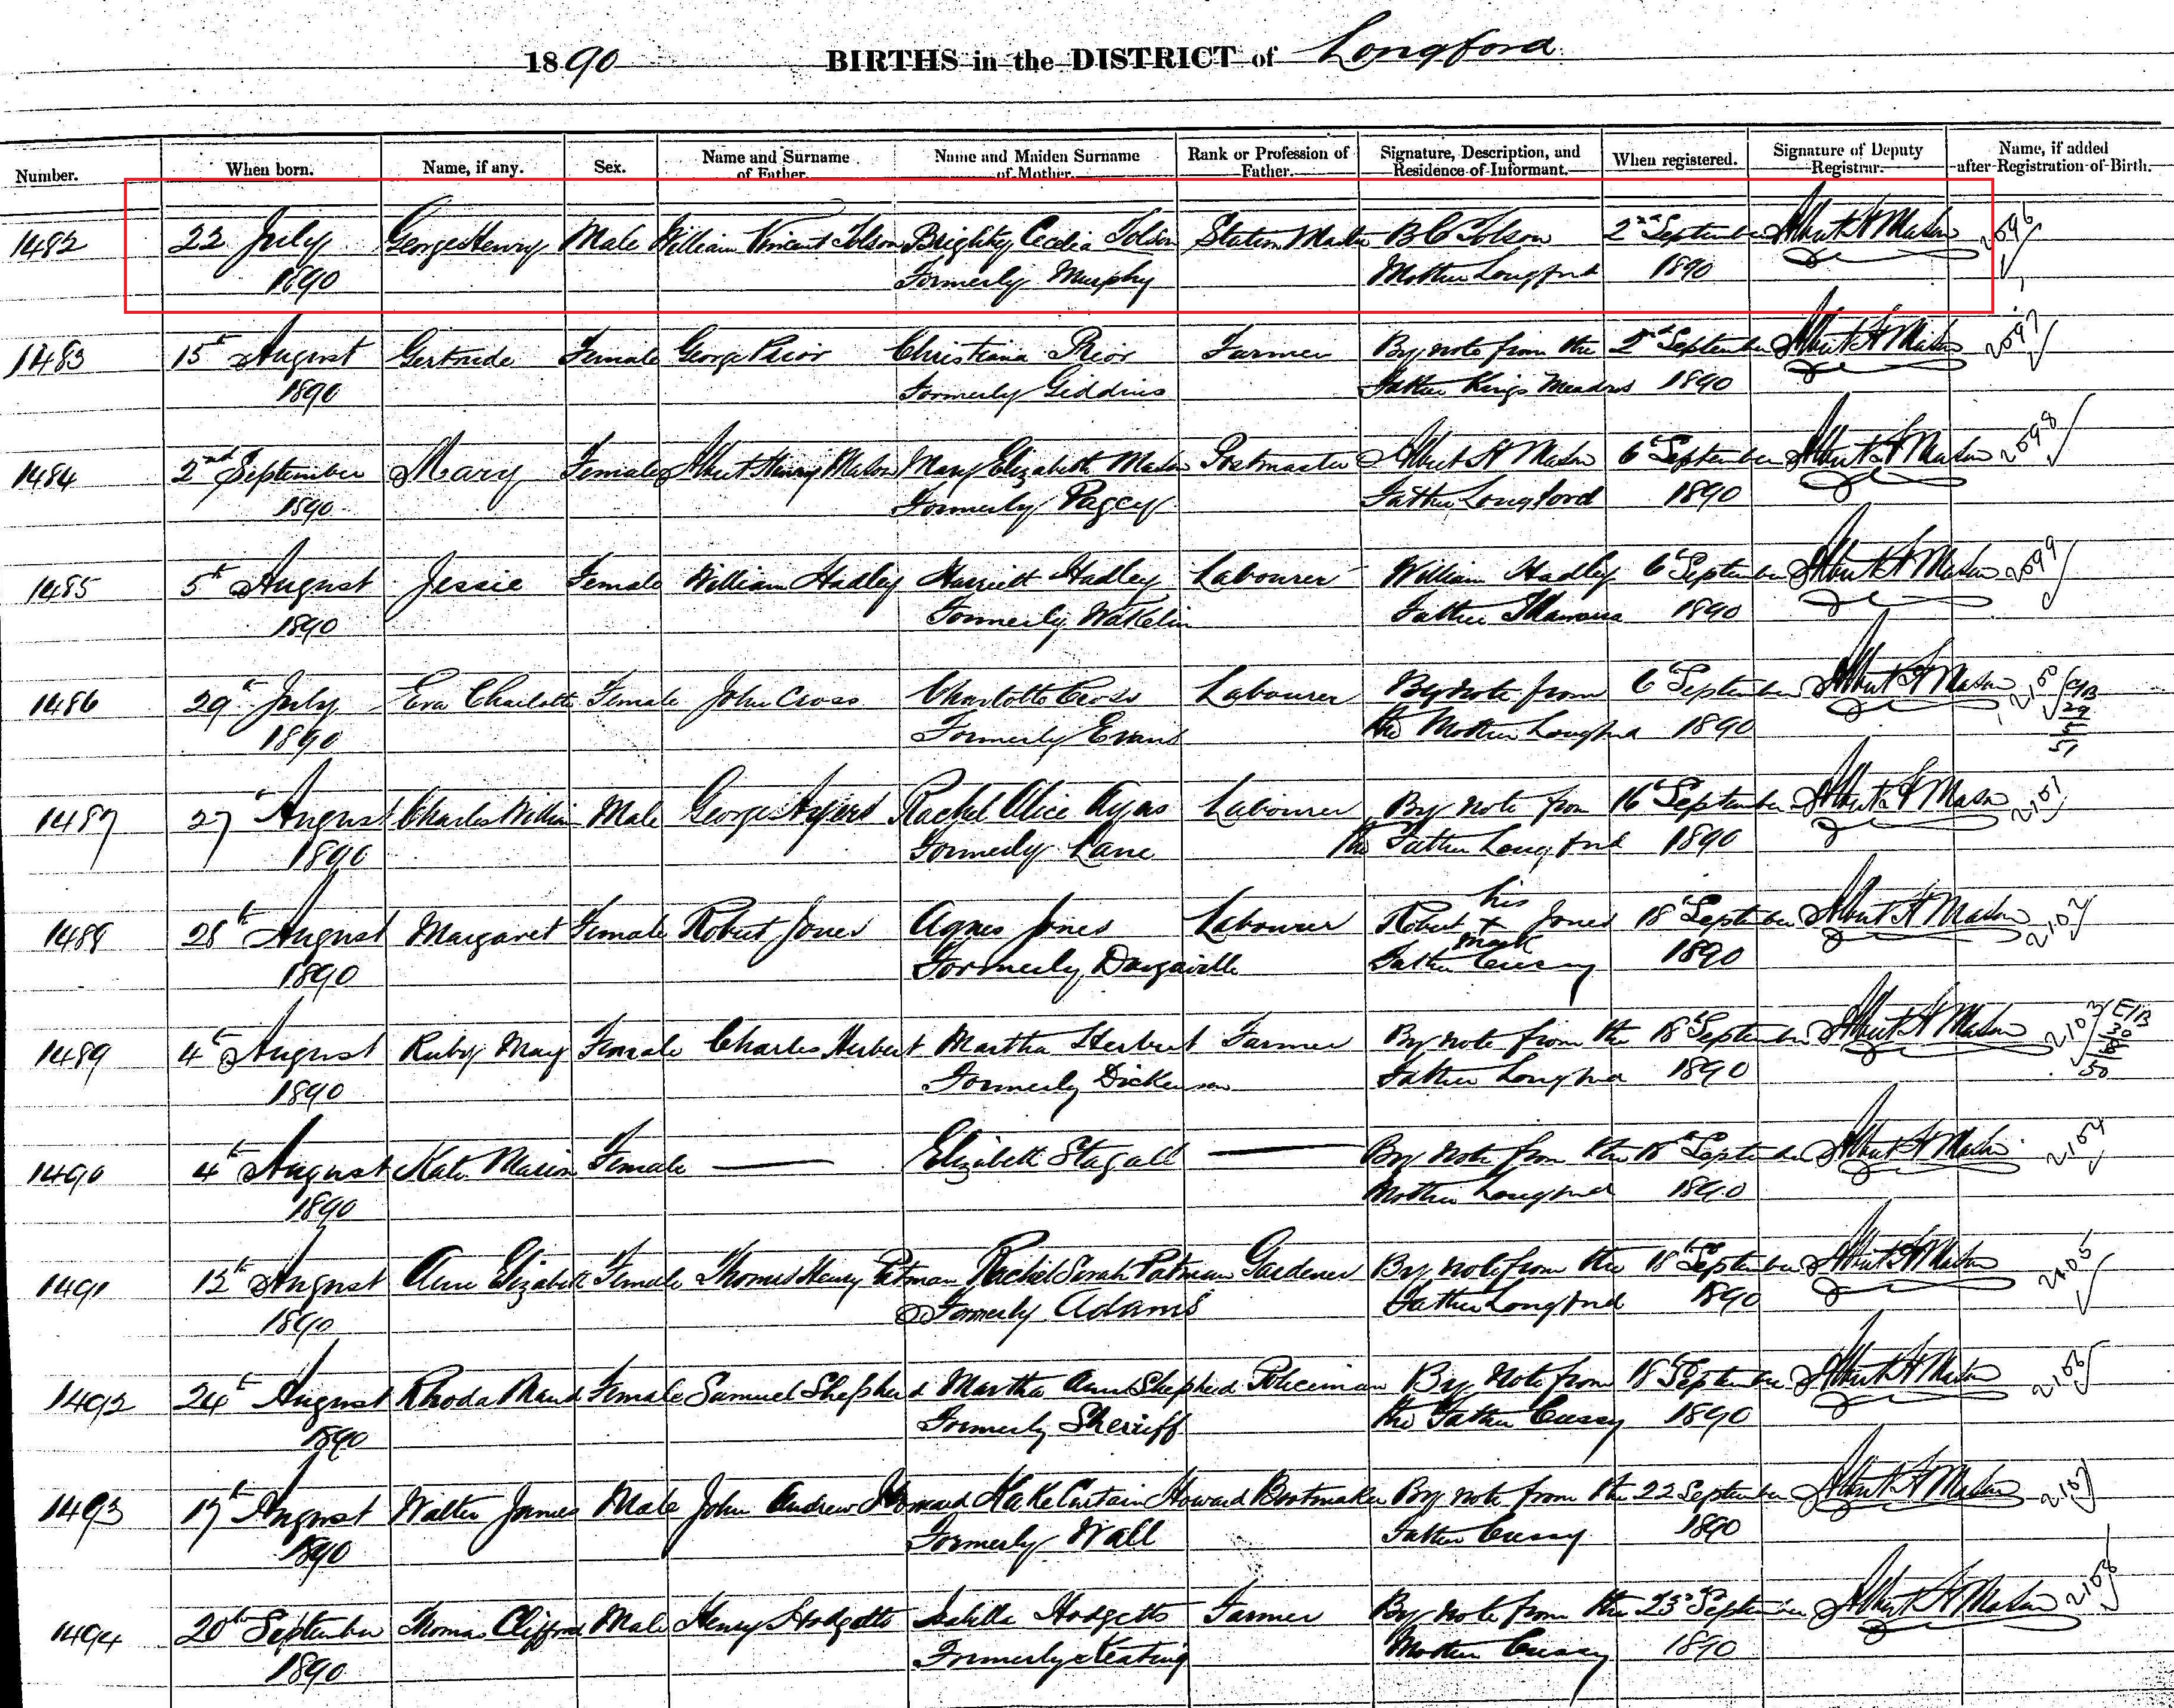 1890 BIRTHS in the DISTRICT of Longford
Number. When born. Name, if any. Sex. Name and Surname of Father. Name and Maiden Surname of Mother. Rank or Profession of Father. Signature, Description, and Residence of Informant. When registered. Signature of Deputy Registrar. Name, if added after Registration of Birth.
1482 22 July George Henry Male William Vincent Tolson Brighty Cecelia Tolson Station Master B C Tolson 2nd September Albert H Mason 2096
1890 Formerly Murphy Mother Longford 1890
1483 15th August Gertrude Female George Prior Christiana Prior Farmer By note from the 2nd September Albert H Mason 2097
1890 Formerly Giddins Father Kings Meadows 1890
1484 2nd September Mary Female Albert Henry Mason Mary Elizabeth Mason Postmaster Albert H Mason 6th September Albert H Mason 2098
1890 Formerly Pagcy Father Longford 1890
1485 5th August Jessie Female William Hadley Harriett Hadley Labourer William Hadley 6th September Albert H Mason 2099
1890 Formerly Wakelin Father 1890
1486 29th July Eva Charlotte Female John Cross Charlotte Cross Labourer By note from 6th September Albert H Mason 2100
1890 Formerly Evans the Mother Longford 1890
1487 27th August Charles William Male George Ayers Rachel Alice Ayers Labourer By note from 16th September Albert H Mason 2101
1890 Formerly Lane the Father Longford 1890
his
1488 28th August Margaret Female Robert Jones Agnes Jones Labourer Robert x Jones 18th September Albert H Mason 2102
mark
1890 Formerly Dargaville Father Cressy 1890
1489 4th August Ruby May Female Charles Herbert Martha Herbert Farmer By note from the 18th September Albert H Mason 2103
1890 Formerly Dickenson Father Longford 1890
1490 4th August Kate Marion Female — Elizabeth Stagall — By note from the 18th September Albert H Mason 2104
1890 Mother Longford 1890
1491 12th August Ann Elizabeth Female Thomas Henry Patman Rachel Sarah Patman Gardener By note from the 18th September Albert H Mason 2105
1890 Formerly Adams Father Longford 1890
1492 24th August Rhoda Maud Female Samuel Shepherd Martha Ann Shepherd Policeman By note from 18th September Albert H Mason 2106
1890 Formerly Sherriff the Father Cressy 1890
1493 17th August Walter James Male John Andrew Howard Kate Curtain Howard Bootmaker By note from the 22 September Albert H Mason 2107
1890 Formerly Wall Father Cressy 1890
1494 20th September Thomas Clifford Male Henry Hodgetts Isabella Hodgetts Farmer By note from the 23rd September Albert H Mason 2108
1890 Formerly Keating Mother Cressy 1890